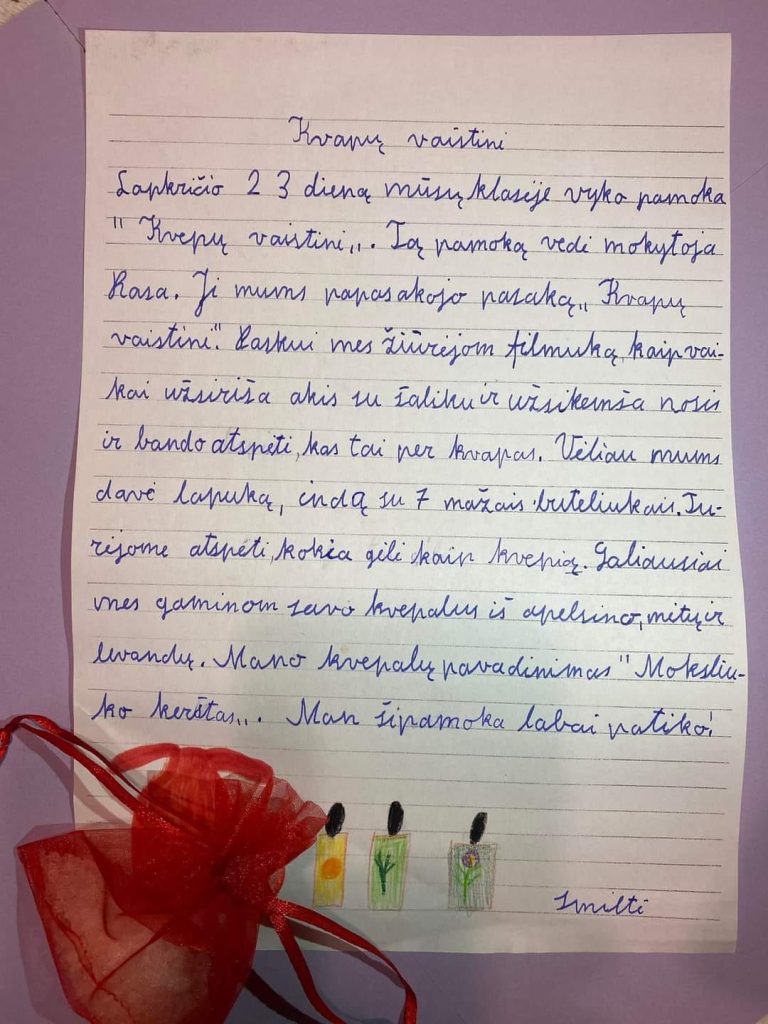 Kvapų vaistini
Lapkričio 23 dieną mūsų klasėje vyko pamoka
" Kvepų vaistini„. Tą pamoką vedi mokytoja
Rasa. Ji mums papasakojo pasaką„ Kvapų
vaistini". Paskui mes žiūrėjom filmuką, kaip vai-
kai užsiriša akis su šaliku ir užsikemša nosis
ir bando atspėti, kas tai per kvapas. Vėliau mums
davė lapuką, indą su 7 mažais buteliukais. Tu-
rėjome atspėti, kokia gėli kaip kvepią. Galiausiai
mes gaminom savo kvepalus iš apelsino, mėtų ir
levandų. Mano kvepalų pavadinimas " Moksliu-
ko kerštas„. Man ši pamoka labai patiko!
Smilti